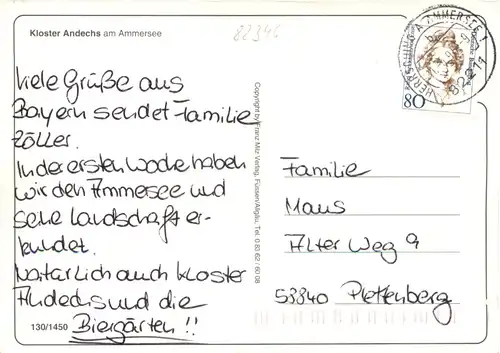 Kloster Andechs am Ammersee
82346
Viele Grüße aus
Bayern sendet Familie
Zöller.
In der ersten Woche haben
wir den Ammersee und
seine Landschaft er-
kundet.
Natürlich auch Kloster
Andechs und die
Biergärten !!
130/1450
Copyright by Franz Milz Verlag, Füssen/Allgäu, Tel. 0 83 62 / 60 08
HERRSCHING A AMMERSEE 1
82211
80
Familie
Maus
Alter Weg 9
58840 Plettenberg